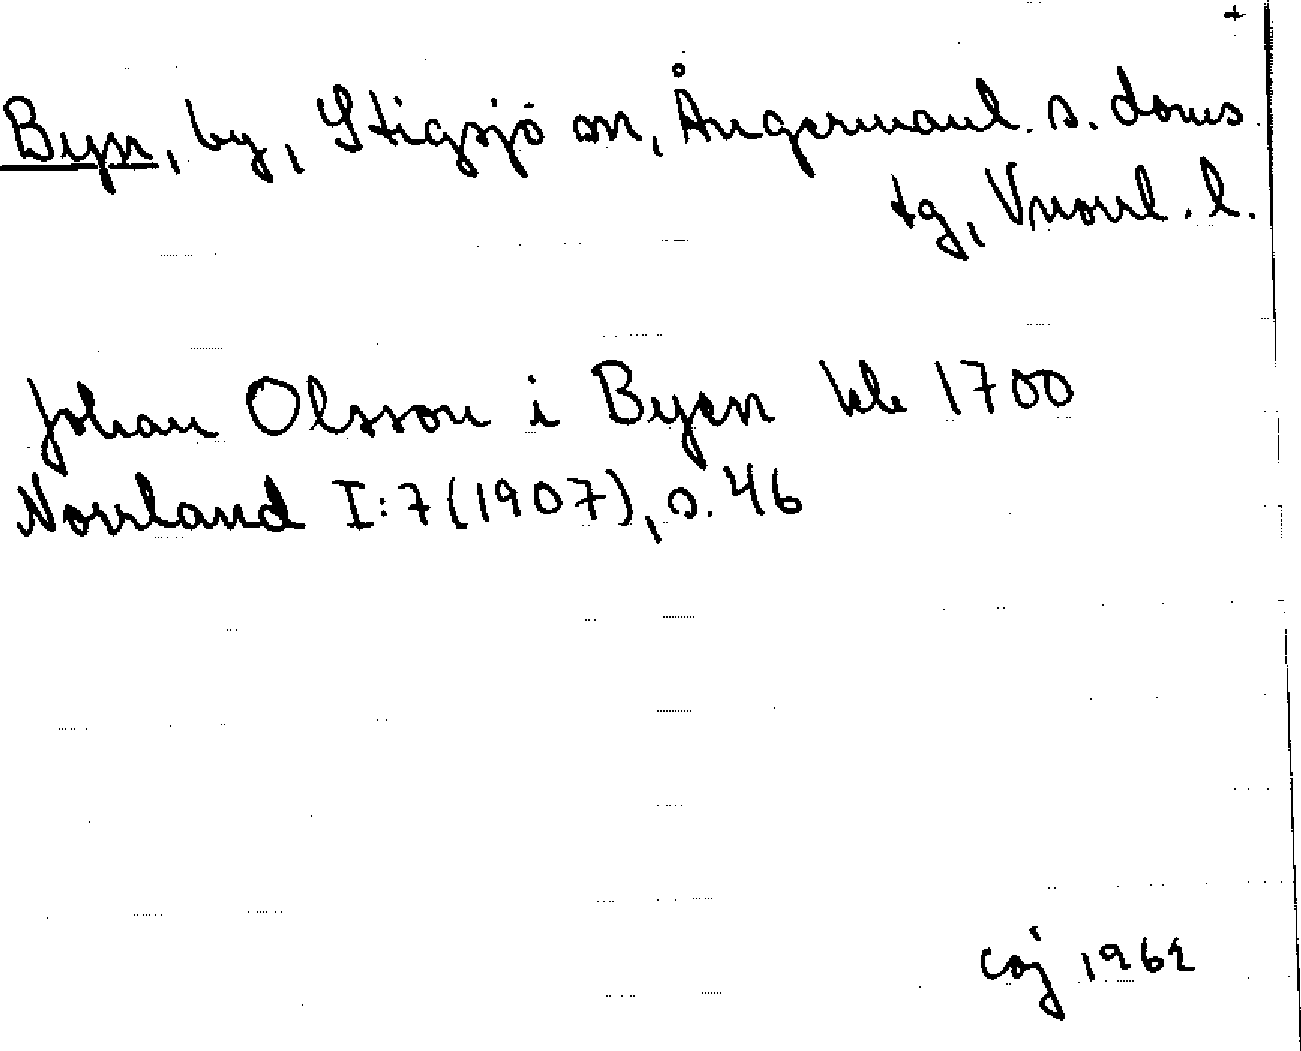 +
Byn, by, Stigsjö sn, Ångermanl. s. doms.
tg, Vnorrl. l.
Johan Olsson i Byen kh 1700
Norrland I:7(1907), s. 46
coj 1962